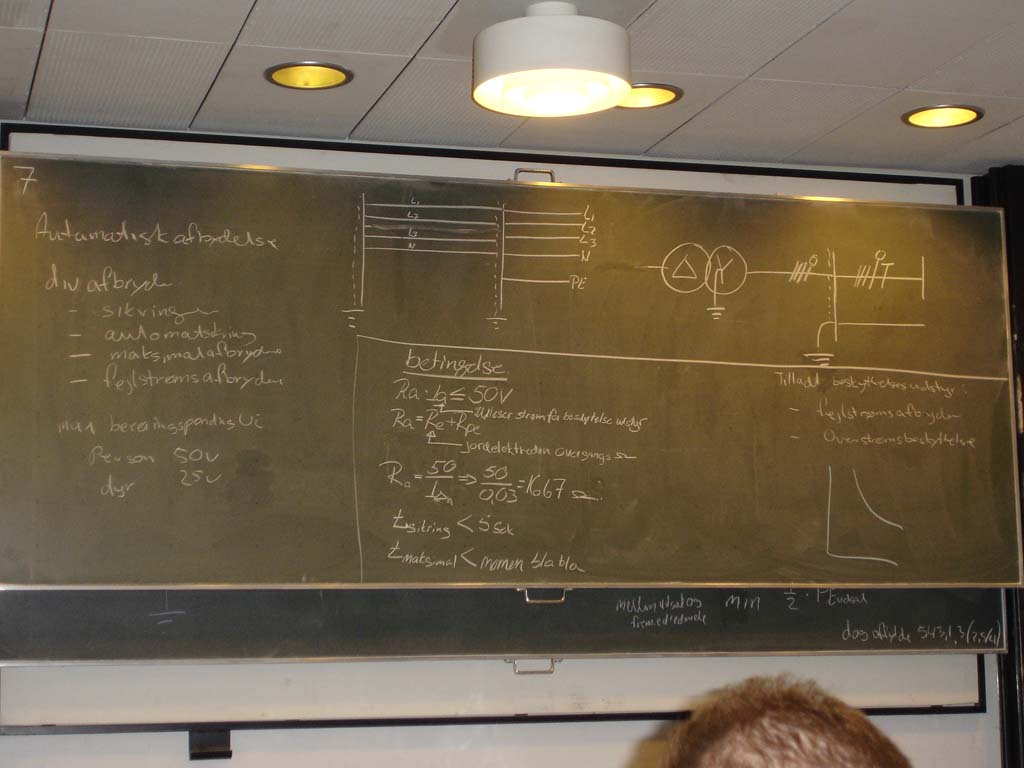 7
Automatisk afbrydelse
div afbryd
- sikringer
- automatsikring
- maksimalafbryder
- fejlstrømsafbryder
max berøringsspænding Ui
Person 50V
dyr 25V
L1
L2
L3
N
L1
L2
L3
N
PE
betingelse
Ra · Ia ≤ 50V
Ra = Re + Rpe
Udløser strøm for beskyttelse udstyr
jordelektroden overgangs Ω
Ra = 50/I△n => 50/0,03 = 1667 Ω
t sikring < 5 sek
t maksimal < momen bla bla
Tilladt beskyttelsesudstyr :
- fejlstrømsafbryder
- Overstrømsbeskyttelse
min 1/2 · PE
dog 543,1,3